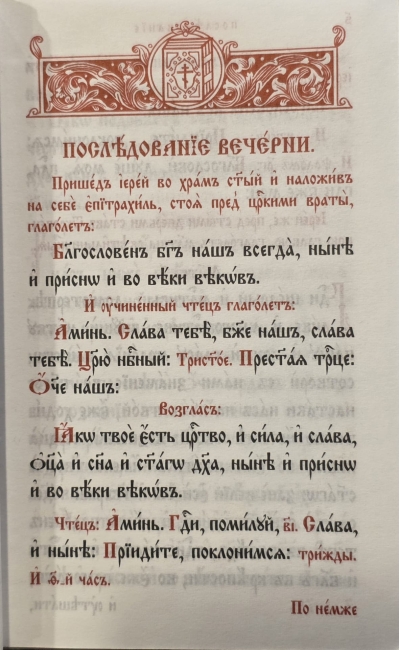 ПОСЛѢ́ДОВАНЇЕ ВЕЧЕ́РНИ.
Прише́дъ їере́й во хра́мъ ст҃ы́й и҆ наложи́въ
на себѐ є҆пїтрахи́ль, стоѧ̀ пред̾ цр҃кими враты̀,
глаго́летъ:
Бл҃гослове́нъ бг҃ъ на́шъ всегда̀, ны́нѣ
и҆ при́снѡ и҆ во вѣ́ки вѣкѡ́въ.
И҆ ᲂу҆чине́нный чте́цъ глаго́летъ:
А҆ми́нь. Сла́ва тебѣ̀, бж҃е на́шъ, сла́ва
тебѣ̀. Цр҃ю̀ нбⷭ҇ный: Трист҃о́е. Прест҃а́ѧ трⷪ҇це:
Ѻ҆́ч҃е на́шъ:
Возгла́съ:
Ꙗ҆́кѡ твоѐ є҆́сть црⷭ҇тво, и҆ си́ла, и҆ сла́ва,
ѻ҆ц҃а̀ и҆ сн҃а и҆ ст҃а́гѡ дх҃а, ны́нѣ и҆ при́снѡ
и҆ во вѣ́ки вѣкѡ́въ.
Чте́цъ: А҆ми́нь. Гдⷭ҇и, поми́лꙋй, в҃і. Сла́ва,
и҆ ны́нѣ: Прїиди́те, поклони́мсѧ: три́жды.
И҆ ѱ҃ло́мъ
По не́мже